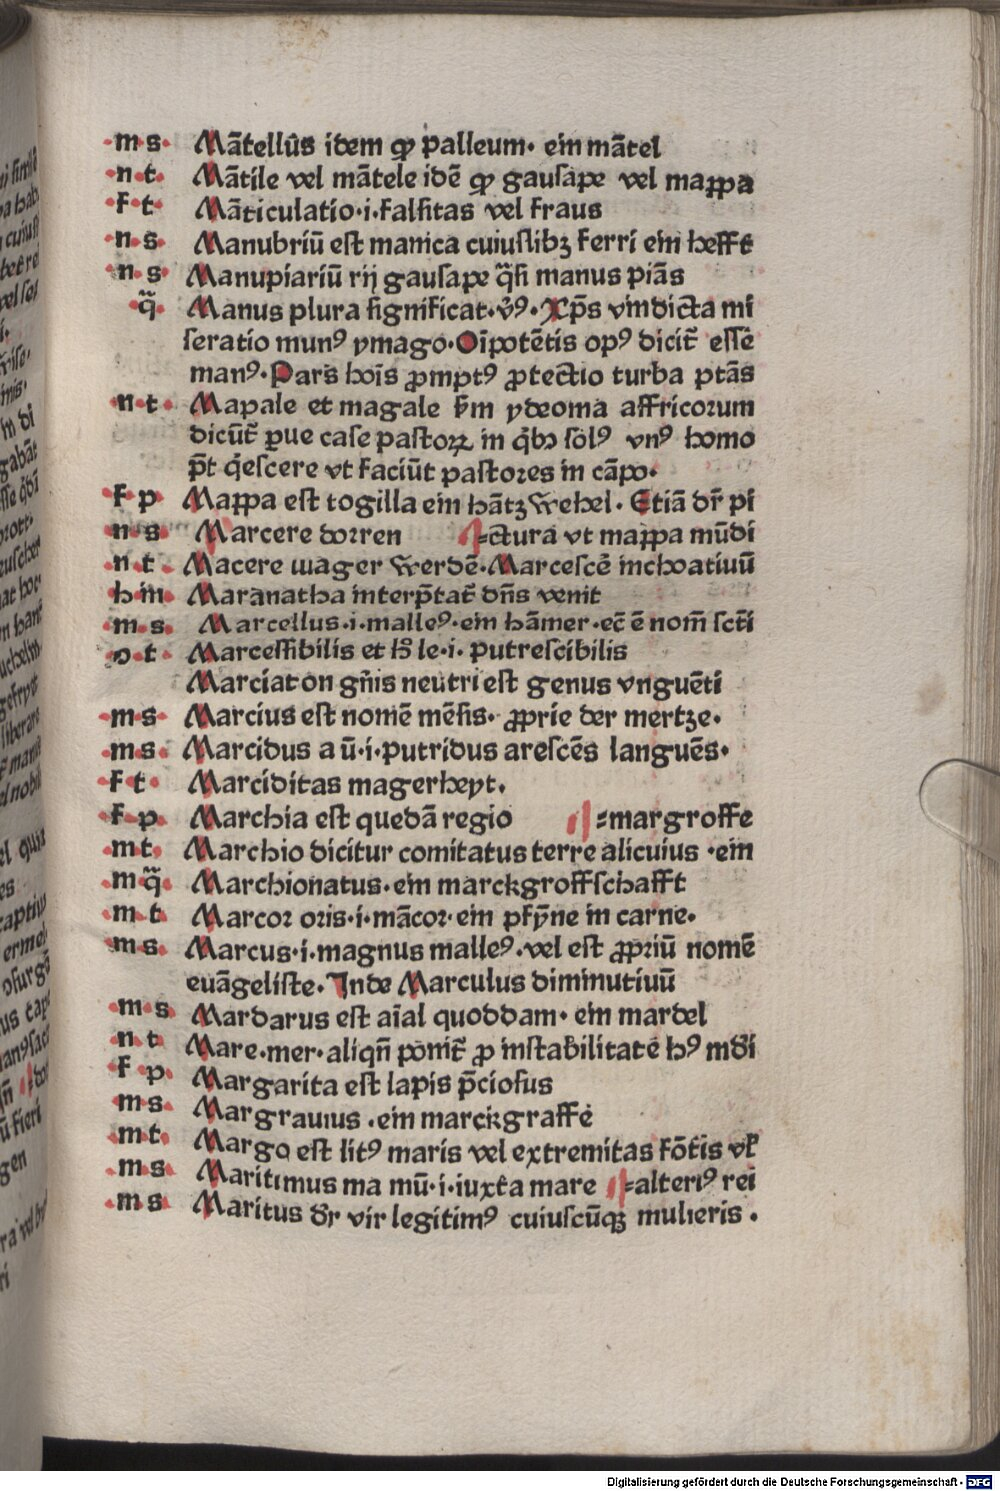 ·m·s· Mātellūs idem qp palleum· ein mātel
·n·t· Mātile vel mātele idē qp gausape vel mappa
·f·t· Māticulatio·i·falsitas vel fraus
·n·s· Manubriū est manica cuiuslibꝫ ferri ein hefft
·n·s Manupiariū rij gausape q̄si manus piās
·q̄· Manus plura significat·v̉ꝰ·Xp̄s vindicta mi
seratio munꝰ ymago·Oīpotētis opꝰ dicit̄ esse
manꝰ·Pars hoīs ꝓmptꝰ ꝓtectio turba ptās
·n·t· Mapale et magale km ydeoma affricorum
dicūt̄ ꝑue case pastoꝝ in qͥbꝰ solꝰ vnꝰ homo
p̄t qͥescere vt faciūt pastores in cāpo·
·f·p· Mappa est togilla ein hātzwehel· Etiā dr̄ pi
·n·s Marcere dorren =ctura vt mappa mūdi
·n·t· Macere mager werdē·Marcescē inchoatiuū
h·m· Maranatha interp̄tat̄ dn̄s venit
·m·s· Marcellus·i·malleꝰ·ein hāmer·ec̄ ē nom̄ sct̄i
·o·t· Marcessibilis et le·i· putrescibilis
Marciaton gn̄is neutri est genus vnguēti
·m·s· Marcius est nomē mēsis· ꝓprie der mertze·
·m·s· Marcidus a ū·i·putridus arescēs languēs·
·f·t· Marciditas magerheyt·
·f·p· Marchia est quedā regio =margroffe
·m·t· Marchio dicitur comitatus terre alicuius ·ein
·m·q̄· Marchionatus·ein marckgroffschafft
·m·t Marcor oris·i·mācor·ein pfȳne in carne·
·m·s· Marcus·i·magnus malleꝰ·vel est ꝓpriū nomē
euāgeliste·Inde Marculus diminutiuū
·m·s Mardarus est aīal quoddam· ein mardel
·n·t Mare·mer·aliqn̄ ponit̄ ꝓ instabilitate hꝰ mdi
·f·p· Margarita est lapis p̄ciosus
·m·s· Margrauius ·ein marckgraffe
·m·t· Margo est litꝰ maris vel extremitas fōtis vl̄
·m·s Maritimus ma mū·i·iuxta mare =alteriꝰ rei
·m·s Maritus dr̄ vir legitimꝰ cuiuscūqꝫ mulieris·
Digitalisierung gefördert durch die Deutsche Forschungsgemeinschaft · DFG